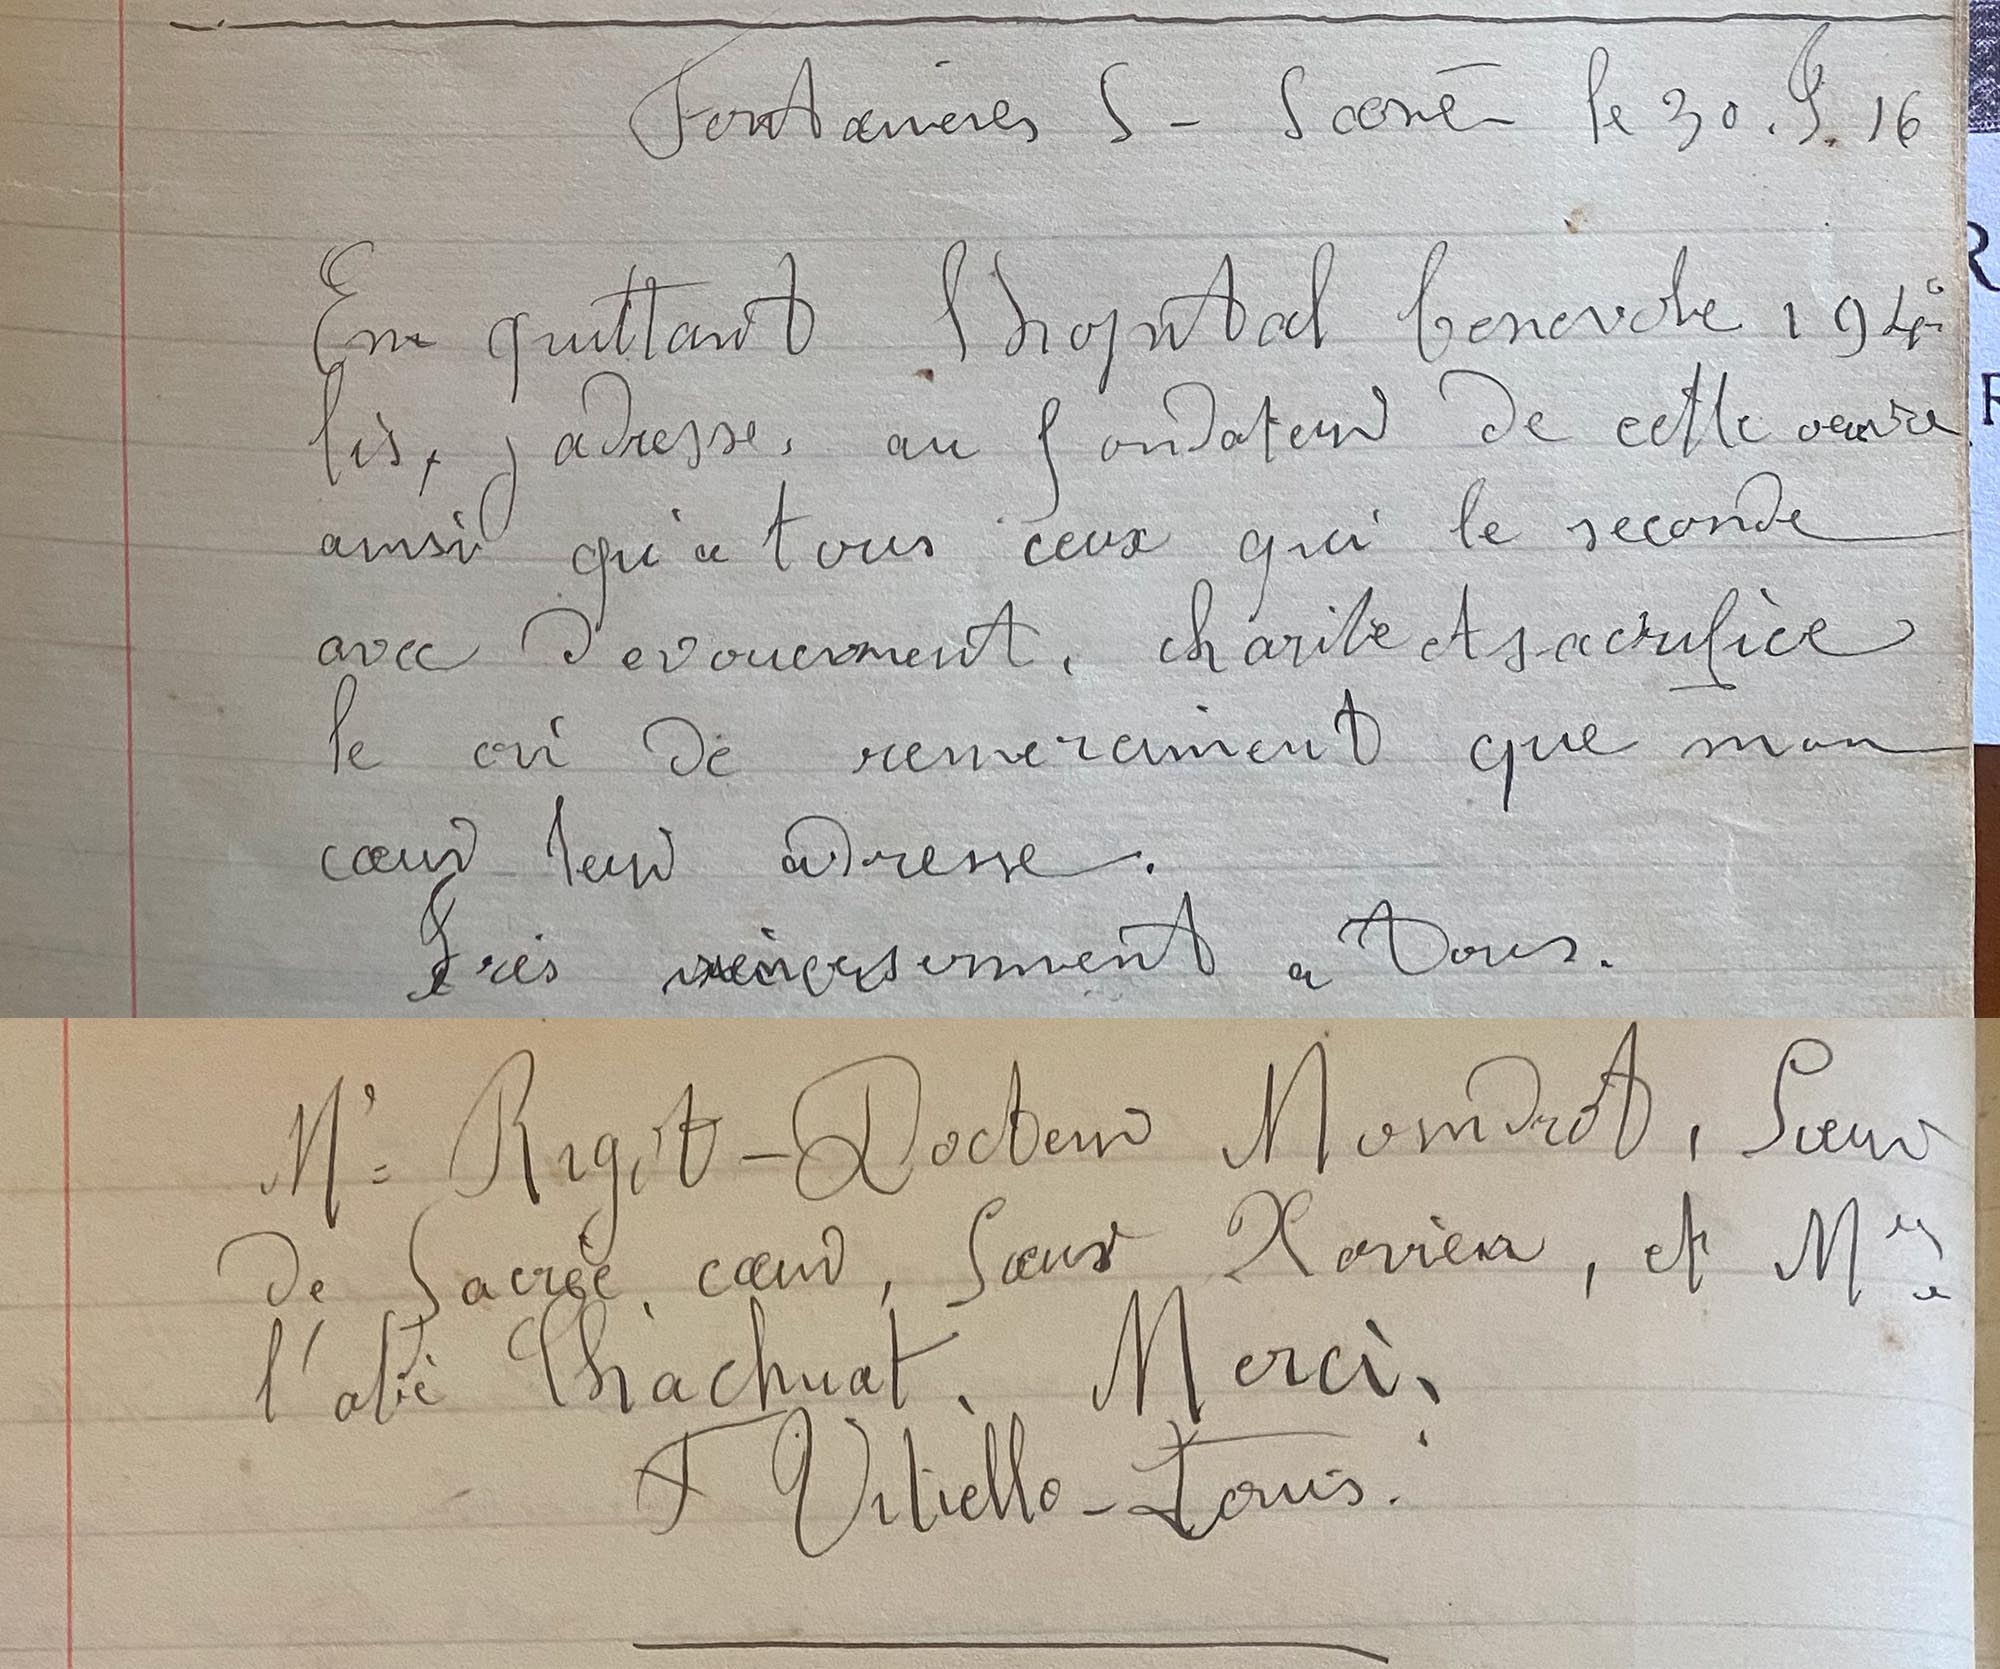 Fontaines S - Saone le 30. 9. 16
En quittant l'hopital benevole 194
bis, j adresse, au fondateur de cette oeuvre
ainsi qu'a tous ceux qui le seconde
avec devouement, charite et sacrifice
le cri de remerciment que mon
cœur leur adresse.
Très a tous.
Mr Rigot - Docteur Mondrot, Sœur
de Sacrée cœur, Sœur Xavier, et Mr
l'abé Chachuat. Merci,
F Vitiello - Louis.
R
F